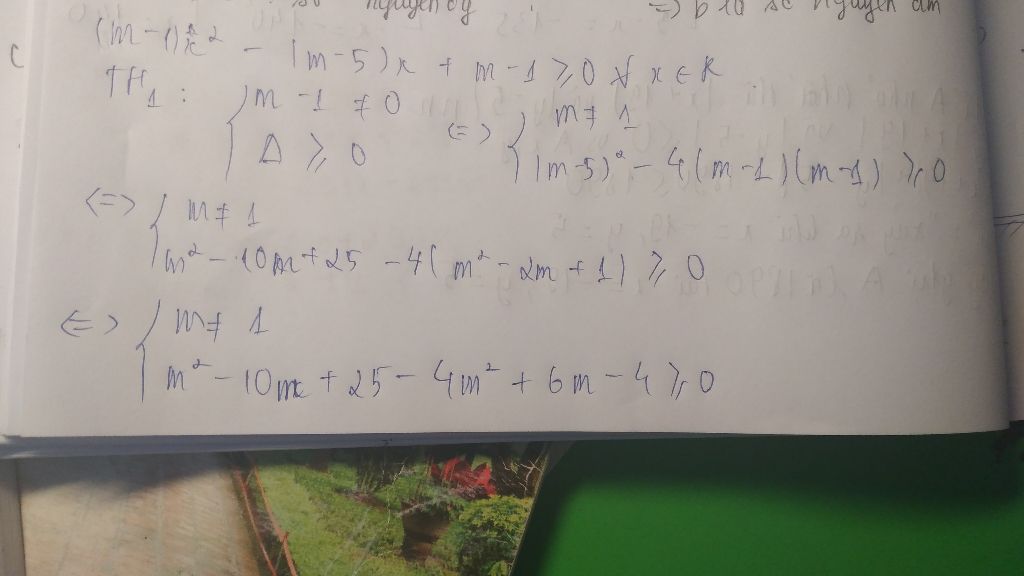 nguyên => b là số nguyên âm
(m-1)x² - (m-5)x + m-1 ⩾ 0 ∀ x ∈ R
TH₁ : { m - 1 ≠ 0 <=> { m ≠ 1
Δ ⩾ 0 (m-5)² - 4(m-1)(m-1) ⩾ 0
<=> { m ≠ 1
m² - 10m + 25 - 4(m² - 2m + 1) ⩾ 0
<=> { m ≠ 1
m² - 10m + 25 - 4m² + 6m - 4 ⩾ 0